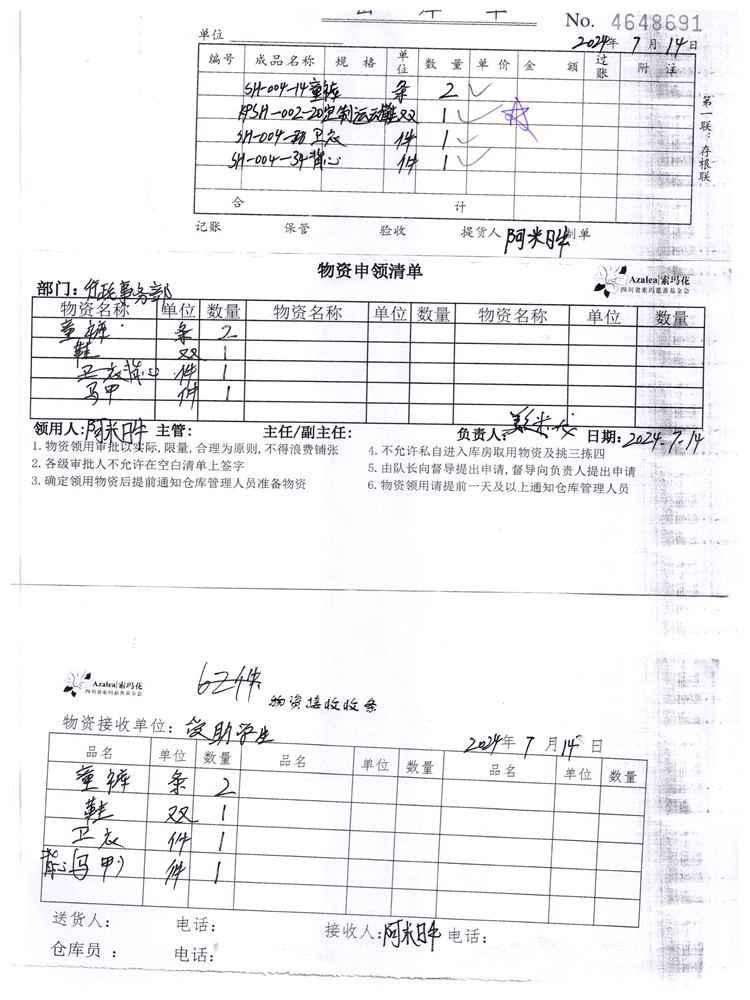 No. 4648691
单位
2024年 7 月 14 日
编号 成品名称 规格 单位 数量 单价 金额 过账 附注
SH-004-14童裤 条 2
SH-002-20定制运动鞋 双 1
卫衣 件 1
SH-004-34背心 件 1
合计
第一联：存根联
记账 保管 验收 提货人 阿米日牛 制单
物资申领清单
Azalea|索玛花
四川省索玛慈善基金会
部门：行政事务部
物资名称 单位 数量 物资名称 单位 数量 物资名称 单位 数量
童裤 条 2
鞋 双 1
卫衣背心 件 1
马甲 件 1
领用人：阿米日牛 主管： 主任/副主任： 负责人： 日期：2024.7.14
1. 物资领用审批以实际，限量，合理为原则，不得浪费铺张
2. 各级审批人不允许在空白清单上签字
3. 确定领用物资后提前通知仓库管理人员准备物资
4. 不允许私自进入库房取用物资及挑三拣四
5. 由队长向督导提出申请，督导向负责人提出申请
6. 物资领用请提前一天及以上通知仓库管理人员
Azalea|索玛花
四川省索玛慈善基金会
62件
物资接收收条
物资接收单位：受助学生
2024年 7 月 14 日
品名 单位 数量 品名 单位 数量 品名 单位 数量
童裤 条 2
鞋 双 1
卫衣 件 1
背心(马甲) 件 1
送货人： 电话： 接收人：阿米日牛 电话：
仓库员： 电话：